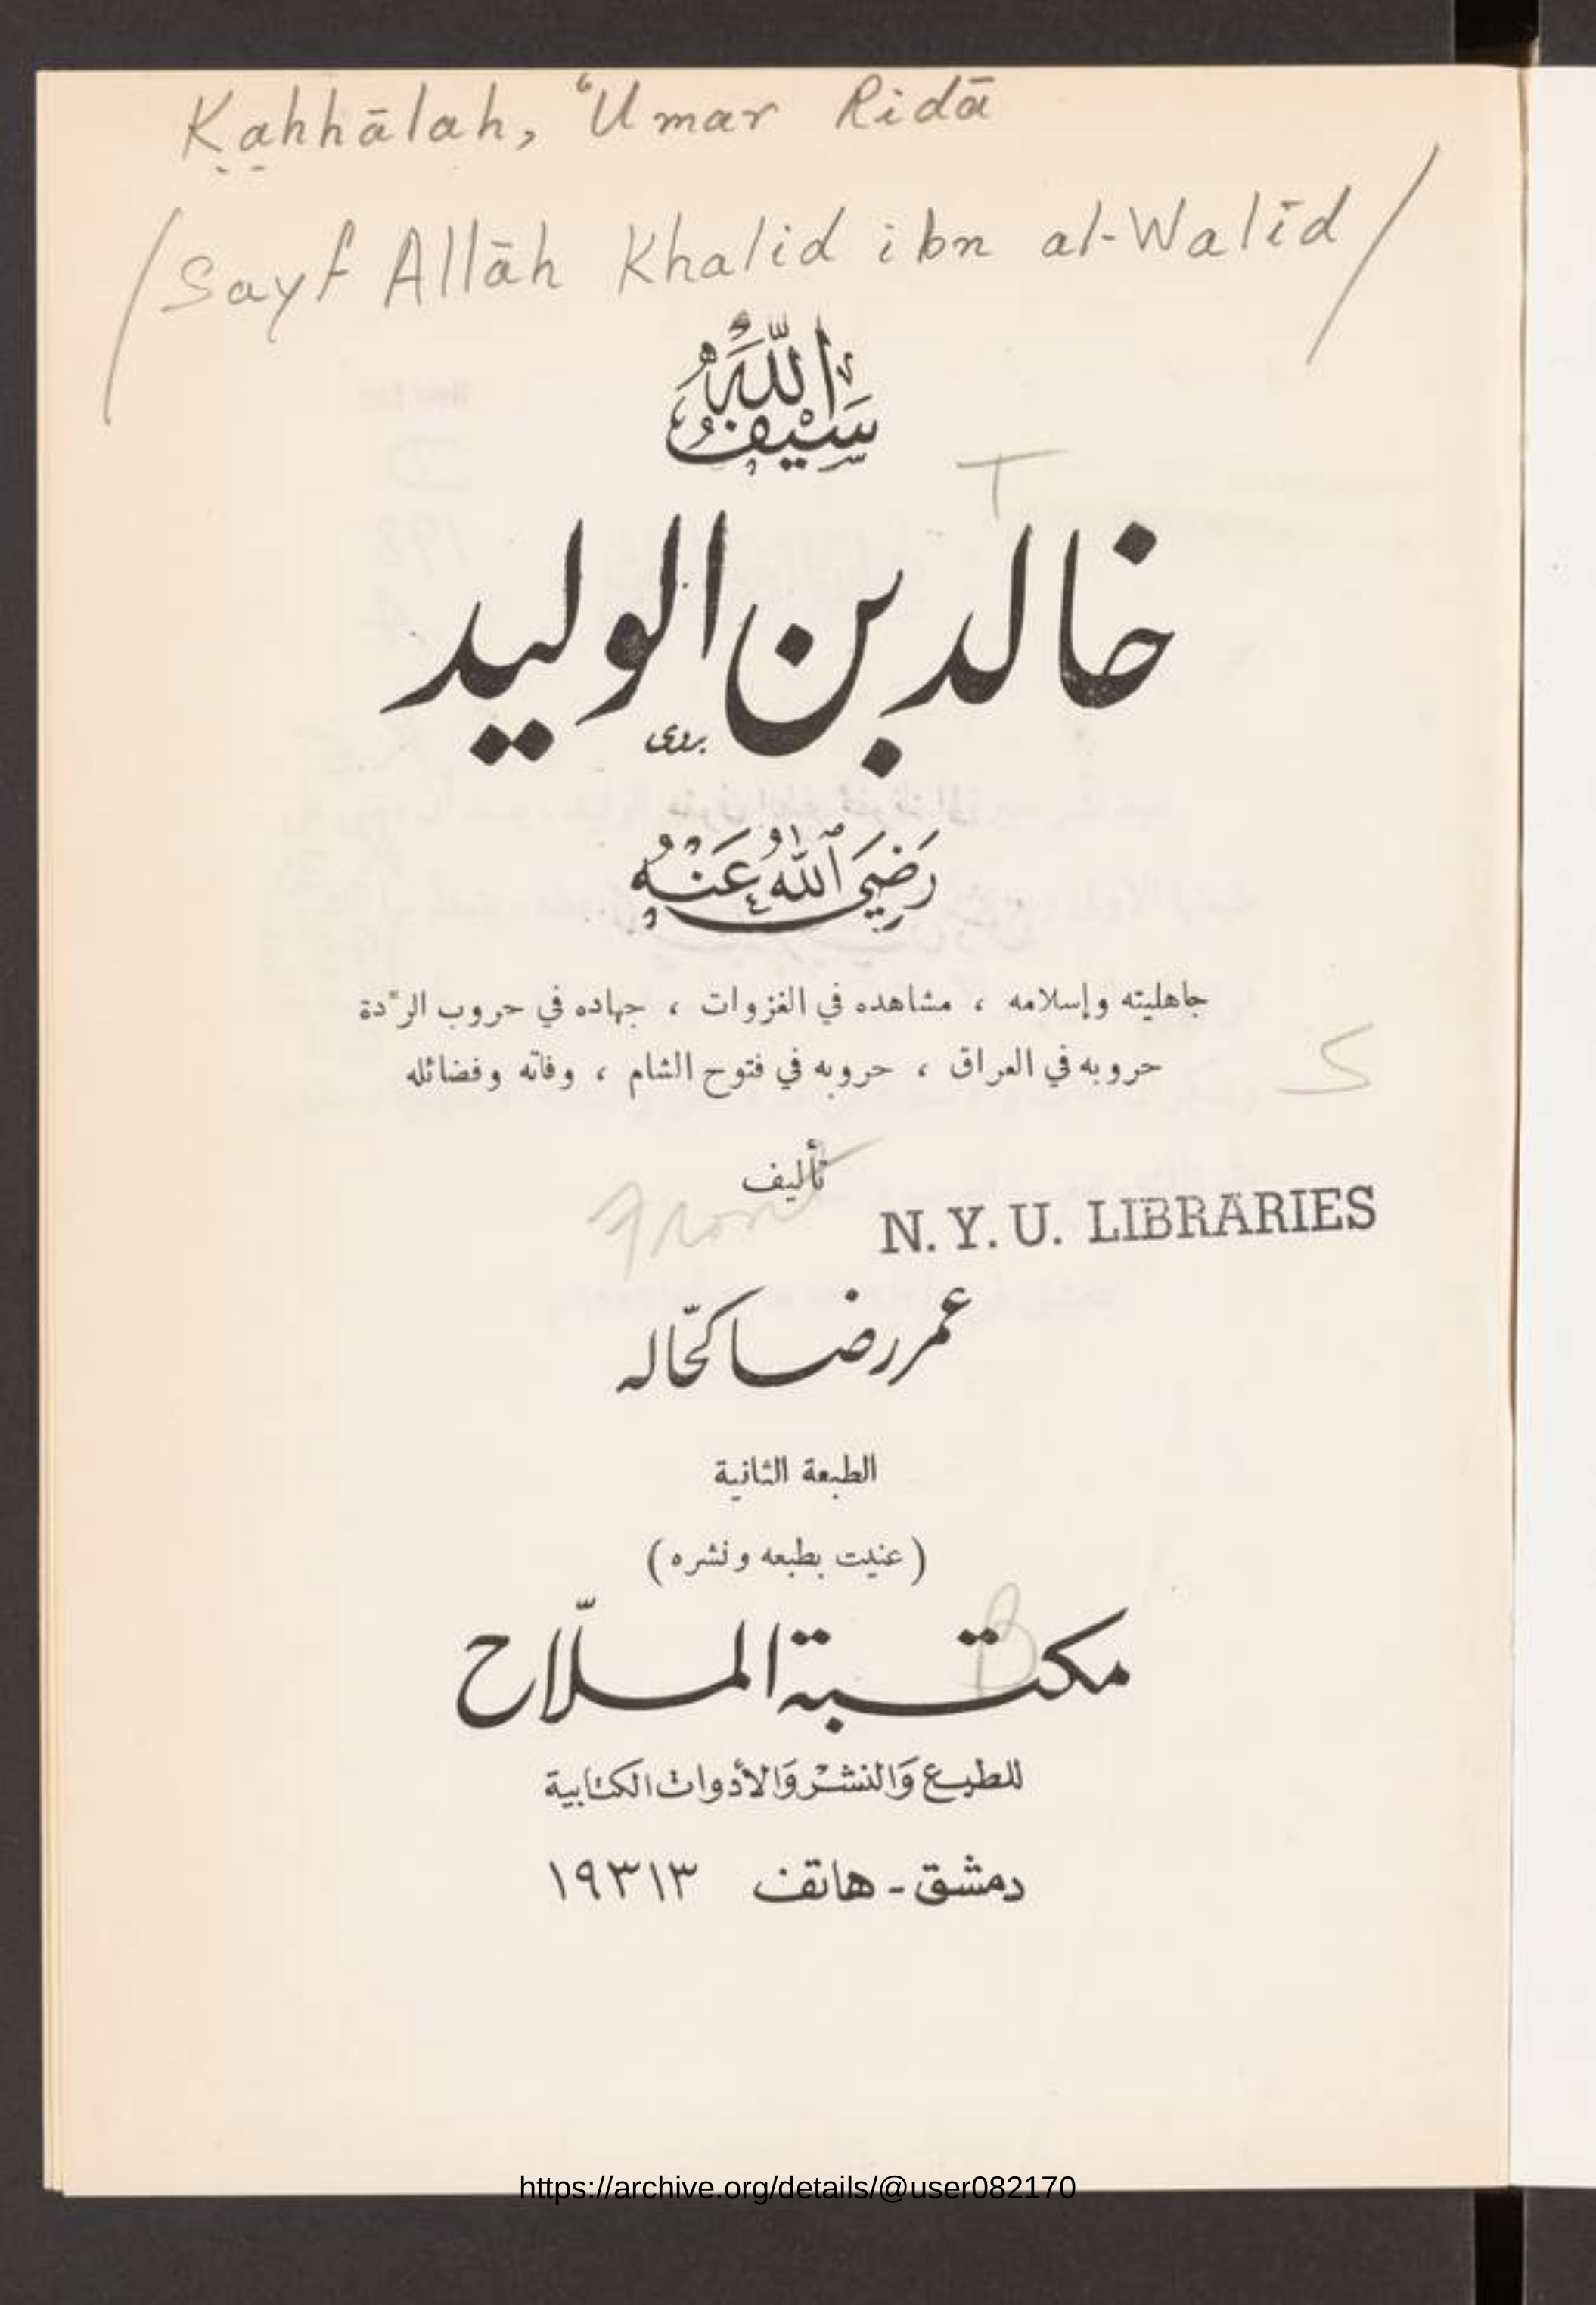 Kahhālah, ʿUmar Ridā
/Sayf Allāh Khalid ibn al-Walīd/
سَيْفُ اللَّهِ
T
خالد بن الوليد
بدوي
رَضِيَ اللهُ عَنْهُ
جاهليته وإسلامه ، مشاهده في الغزوات ، جهاده في حروب الرّدة
حروبه في العراق ، حروبه في فتوح الشام ، وفاته وفضائله
تأليف
Front
N. Y. U. LIBRARIES
عمر رضا كحّاله
الطبعة الثانية
( عنيت بطبعه ونشره )
B
مكتبة الملّاح
للطبع وَالنشْر وَالأدوات الكتابية
دمشق - هاتف ١٩٣١٣
https://archive.org/details/@user082170